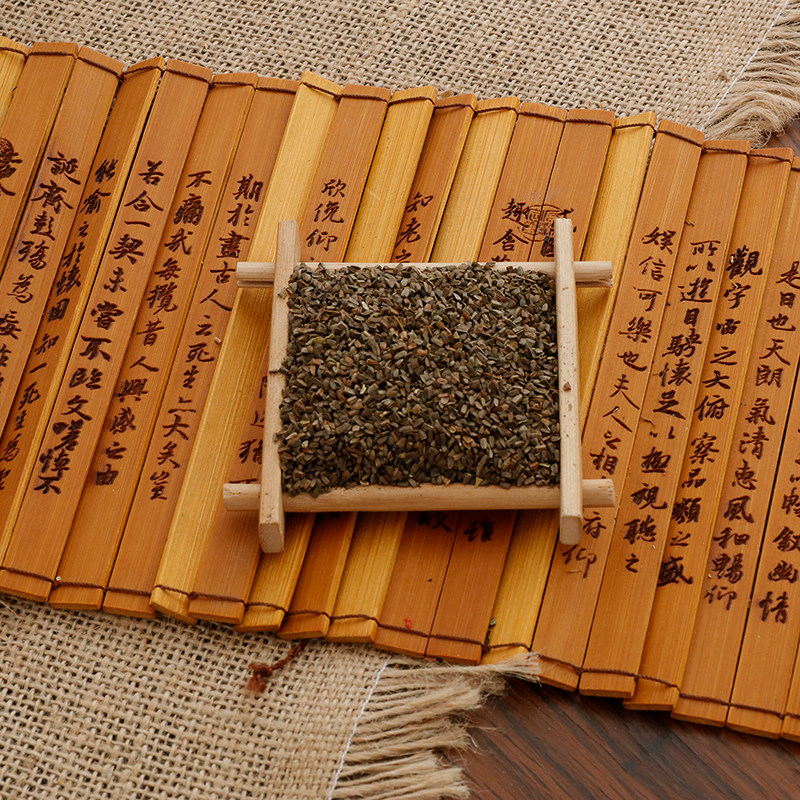 暢叙幽情
是日也天朗氣清惠風和暢仰
觀宇宙之大俯察品類之盛
所以遊目騁懷足以極視聽之
娛信可樂也夫人之相
俯仰
趣舍萬
雖
知老之
欣俛仰
期於盡古人云死生亦大矣豈
不痛哉每攬昔人興感之由
若合一契未嘗不臨文嗟悼不
能喻之於懷固知一死生為
誕齊彭殤為妄